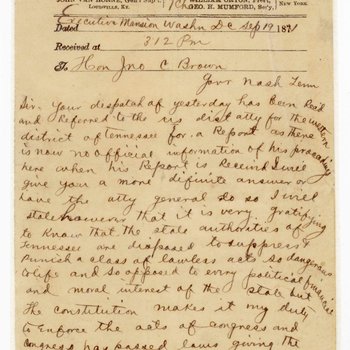 JOHN VAN HORNE, Gen'l Sup't,
LOUISVILLE, KY.
WILLIAM ORTON, Pres't,
GEO. H. MUMFORD, Sec'y,
New York
Dated Executive Mansion Washn DC Sep 19 187
Received at 312 Pm
To Hon Jno C Brown
Govr Nash Tenn
Sir Your dispatch of yesterday has been Recd
and Referred to the US dist atty for the western
district of tennessee for a Report as there
is now no official information of his proceeding
here when his Report is Received I will
give you a more difinite answer or
have the atty general do so I will
state however that it is very gratifying
to Know that the state authorities of
Tennessee are disposed to suppress &
Punish a class of lawless acts so dangerous
to life and so opposed to every political financial
and moral interest of the state but
The constitution makes it my duty
to Enforce the acts of congress and
Congress has passed laws giving the